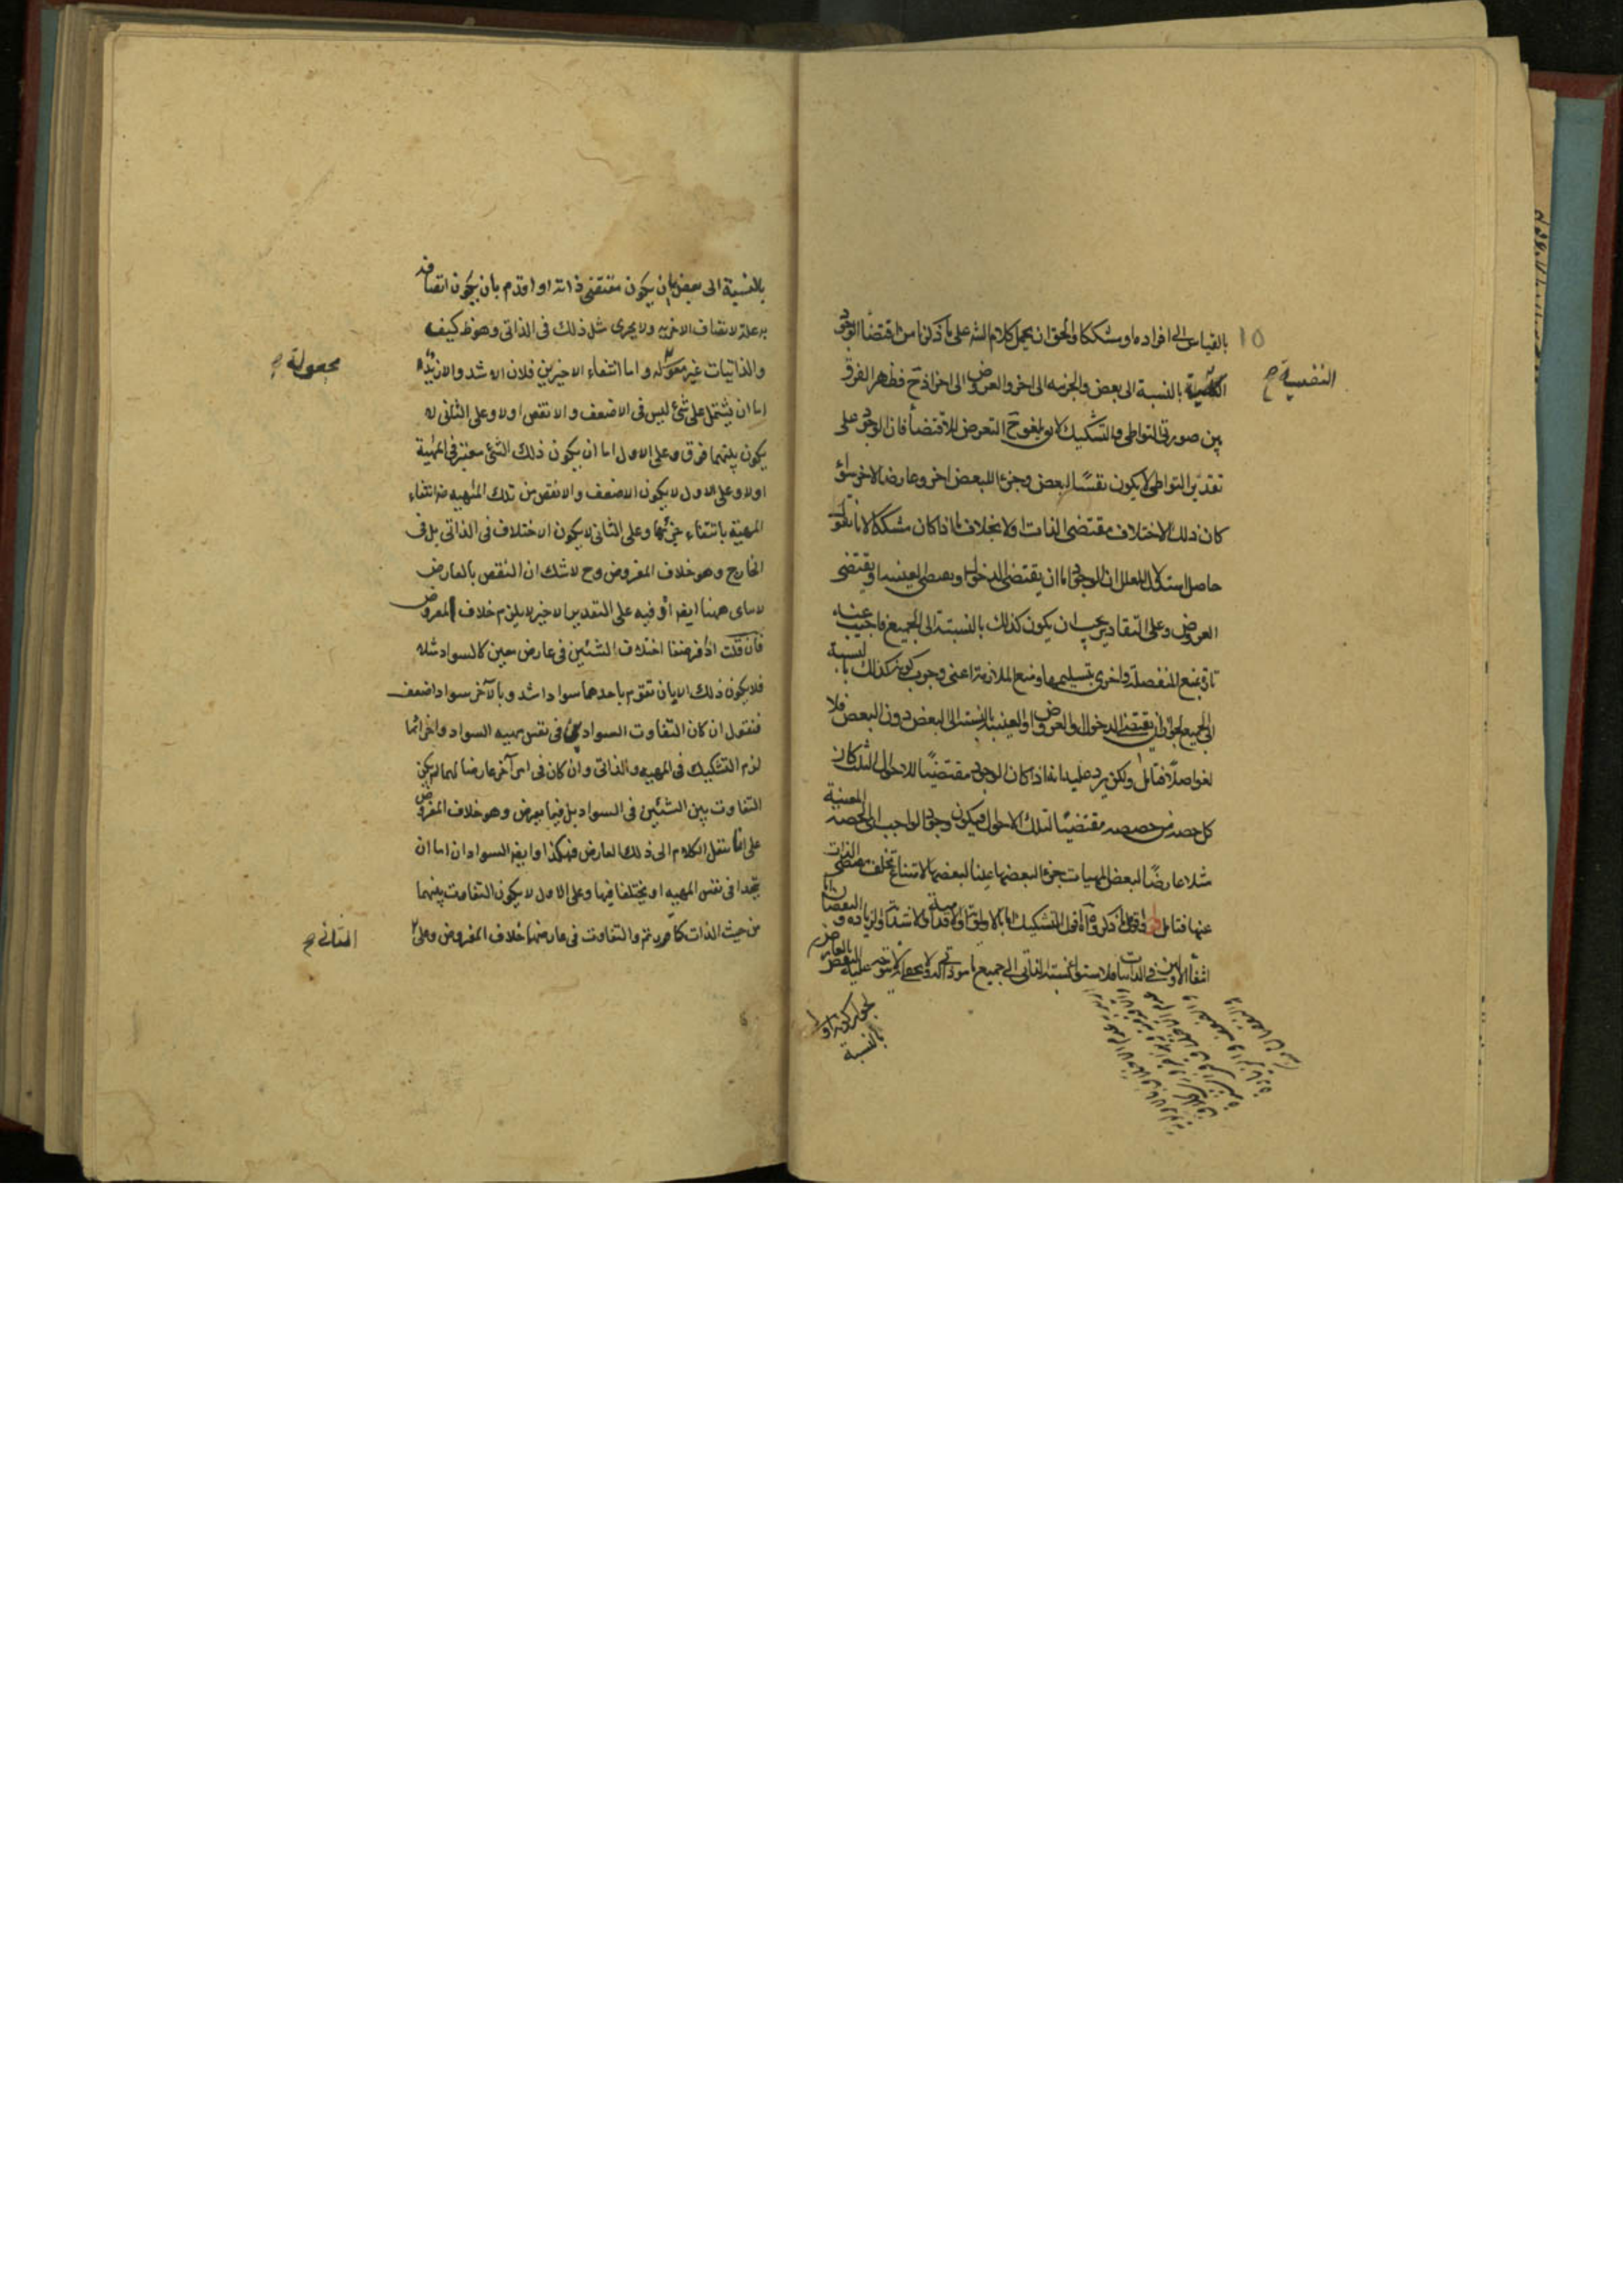 بالقياس الى افراده او مشككا والحق ان يحمل كلام الشه على ما ذكرنا من اقتضاء الوجود
١٥
النفسية صح
بالنسبة الى بعض والجزئيه الى اخر والعروض الى اخر اذ ح فظهر الفرق
بين صورتى التواطى والتشكيك التعرض للاقتضاء فان الوجود على
تقدير التواطى لا يكون نفسا لبعض وجزءا للبعض اخر وعارضا لاخر سواء
كان ذلك الاختلاف مقتضى الذات اولا بخلاف ما اذا كان مشككا لانا نقول
حاصل استدلال المعلل ان الوجود اما ان يقتضى الدخول او يقتضى العينية او يقتضى
العروض وعلى التقادير يجب ان يكون كذلك بالنسبة الى الجميع فاجيب عنه
تارة بمنع المنفصلة واخرى بتسليمها ومنع الملازمة اعنى وجوب كونه كذلك بالنسبة
الى الجميع لجواز ان يقتضى الدخول والعروض او العينية بالنسبة الى البعض دون البعض فلا
لغو اصلا فتامل ولكن يرد عليه انه اذا كان الوجود مقتضيا للاحوال الثلث كان
كل حصة من حصصه مقتضيا لتلك الاحوال فيكون وجود الواجب اى الحصة المعينة
مثلا عارضا لبعض المهيات جزءا لبعضها عينا لبعضها لامتناع تخلف مقتضى الذات
عنها فتامل اقول التشكيك اما بالاولوية او الاقدمية او الاشدية او الزيادة و النقصان اما
انتفاء الاولين فى الذاتيات فلاستواء نسبة الذاتى الى جميع ما هو ذاتى له لا يتوجه عليه النقض بالعارض
لجواز كونه اولى
بالنسبة
بالنسبة الى بعض بان يكون مقتضى ذاته او اقدم بان يكون اتصافه
به علة لاتصاف الاخر به ولا يجرى مثل ذلك فى الذاتى وهو ظ كيف
والذاتيات غير معلله واما انتفاء الاخيرين فلان الاشد والازيد
مجعولة صح
اما ان يشتمل على شئ ليس فى الاضعف والانقص اولا وعلى الثانى لا
يكون بينهما فرق وعلى الاول اما ان يكون ذلك الشئ معتبر فى المهية
اولا وعلى الاول لا يكون الاضعف والانقص من تلك المهيه ضرانتفاء
المهية بانتفاء جزئها وعلى الثانى لا يكون الاختلاف فى الذاتى بل فى
الخارج وهو خلاف المفروض وح لا شك ان النقض بالعارض
ههنا ايضا اذ فيه على التقدير الاخير لا يلزم خلاف المفروض
فان قلت اذا فرضنا اختلاف الشئين فى عارض معين كالسواد مثلا
فلا يكون ذلك الا بان تقوم باحدهما سواد اشد وبالآخر سواد اضعف
فنقول ان كان التفاوت السوادين فى نفس مهيه السواد واجزائها
لزم التشكيك فى المهيه والذاتى وان كان فى امر آخر عارضا لهما لم يكن
التفاوت بين الشئين فى السواد بل فيما يعرض وهو خلاف المفروض
على انا ننقل الكلام الى ذلك العارض فهكذا وايضا السوادان اما ان
يتحدا فى نفس المهيه او يختلفا فيها وعلى الاول لا يكون التفاوت بينهما
من حيث الذات كما قررتم والتفاوت فى عارضهما خلاف المفروض وعلى
الثانى صح